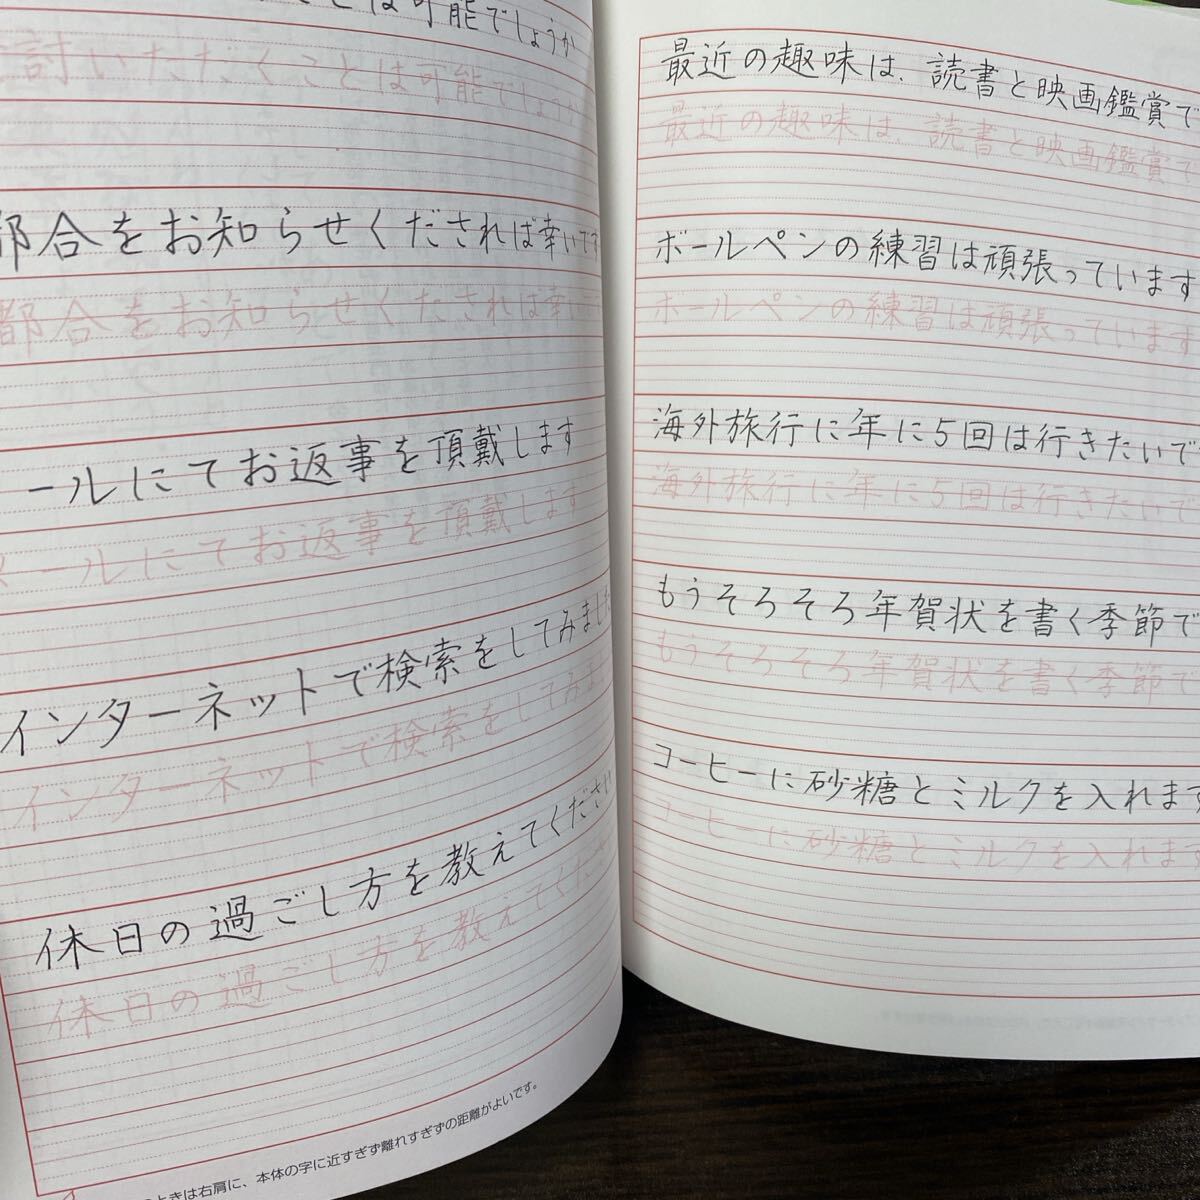 ことは可能でしょうか
討いただくことは可能でしょうか
都合をお知らせくだされば幸いです
都合をお知らせくだされば幸いです
ールにてお返事を頂戴します
メールにてお返事を頂戴します
インターネットで検索をしてみました
インターネットで検索をしてみま
休日の過ごし方を教えてください
休日の過ごし方を教えてくださ
ときは右肩に、本体の字に近すぎず離れすぎずの距離がよいです。
最近の趣味は、読書と映画鑑賞で
最近の趣味は、読書と映画鑑賞で
ボールペンの練習は頑張っています
ボールペンの練習は頑張っています
海外旅行に年に5回は行きたいで
海外旅行に年に5回は行きたいで
もうそろそろ年賀状を書く季節で
もうそろそろ年賀状を書く季節で
コーヒーに砂糖とミルクを入れます
コーヒーに砂糖とミルクを入れます